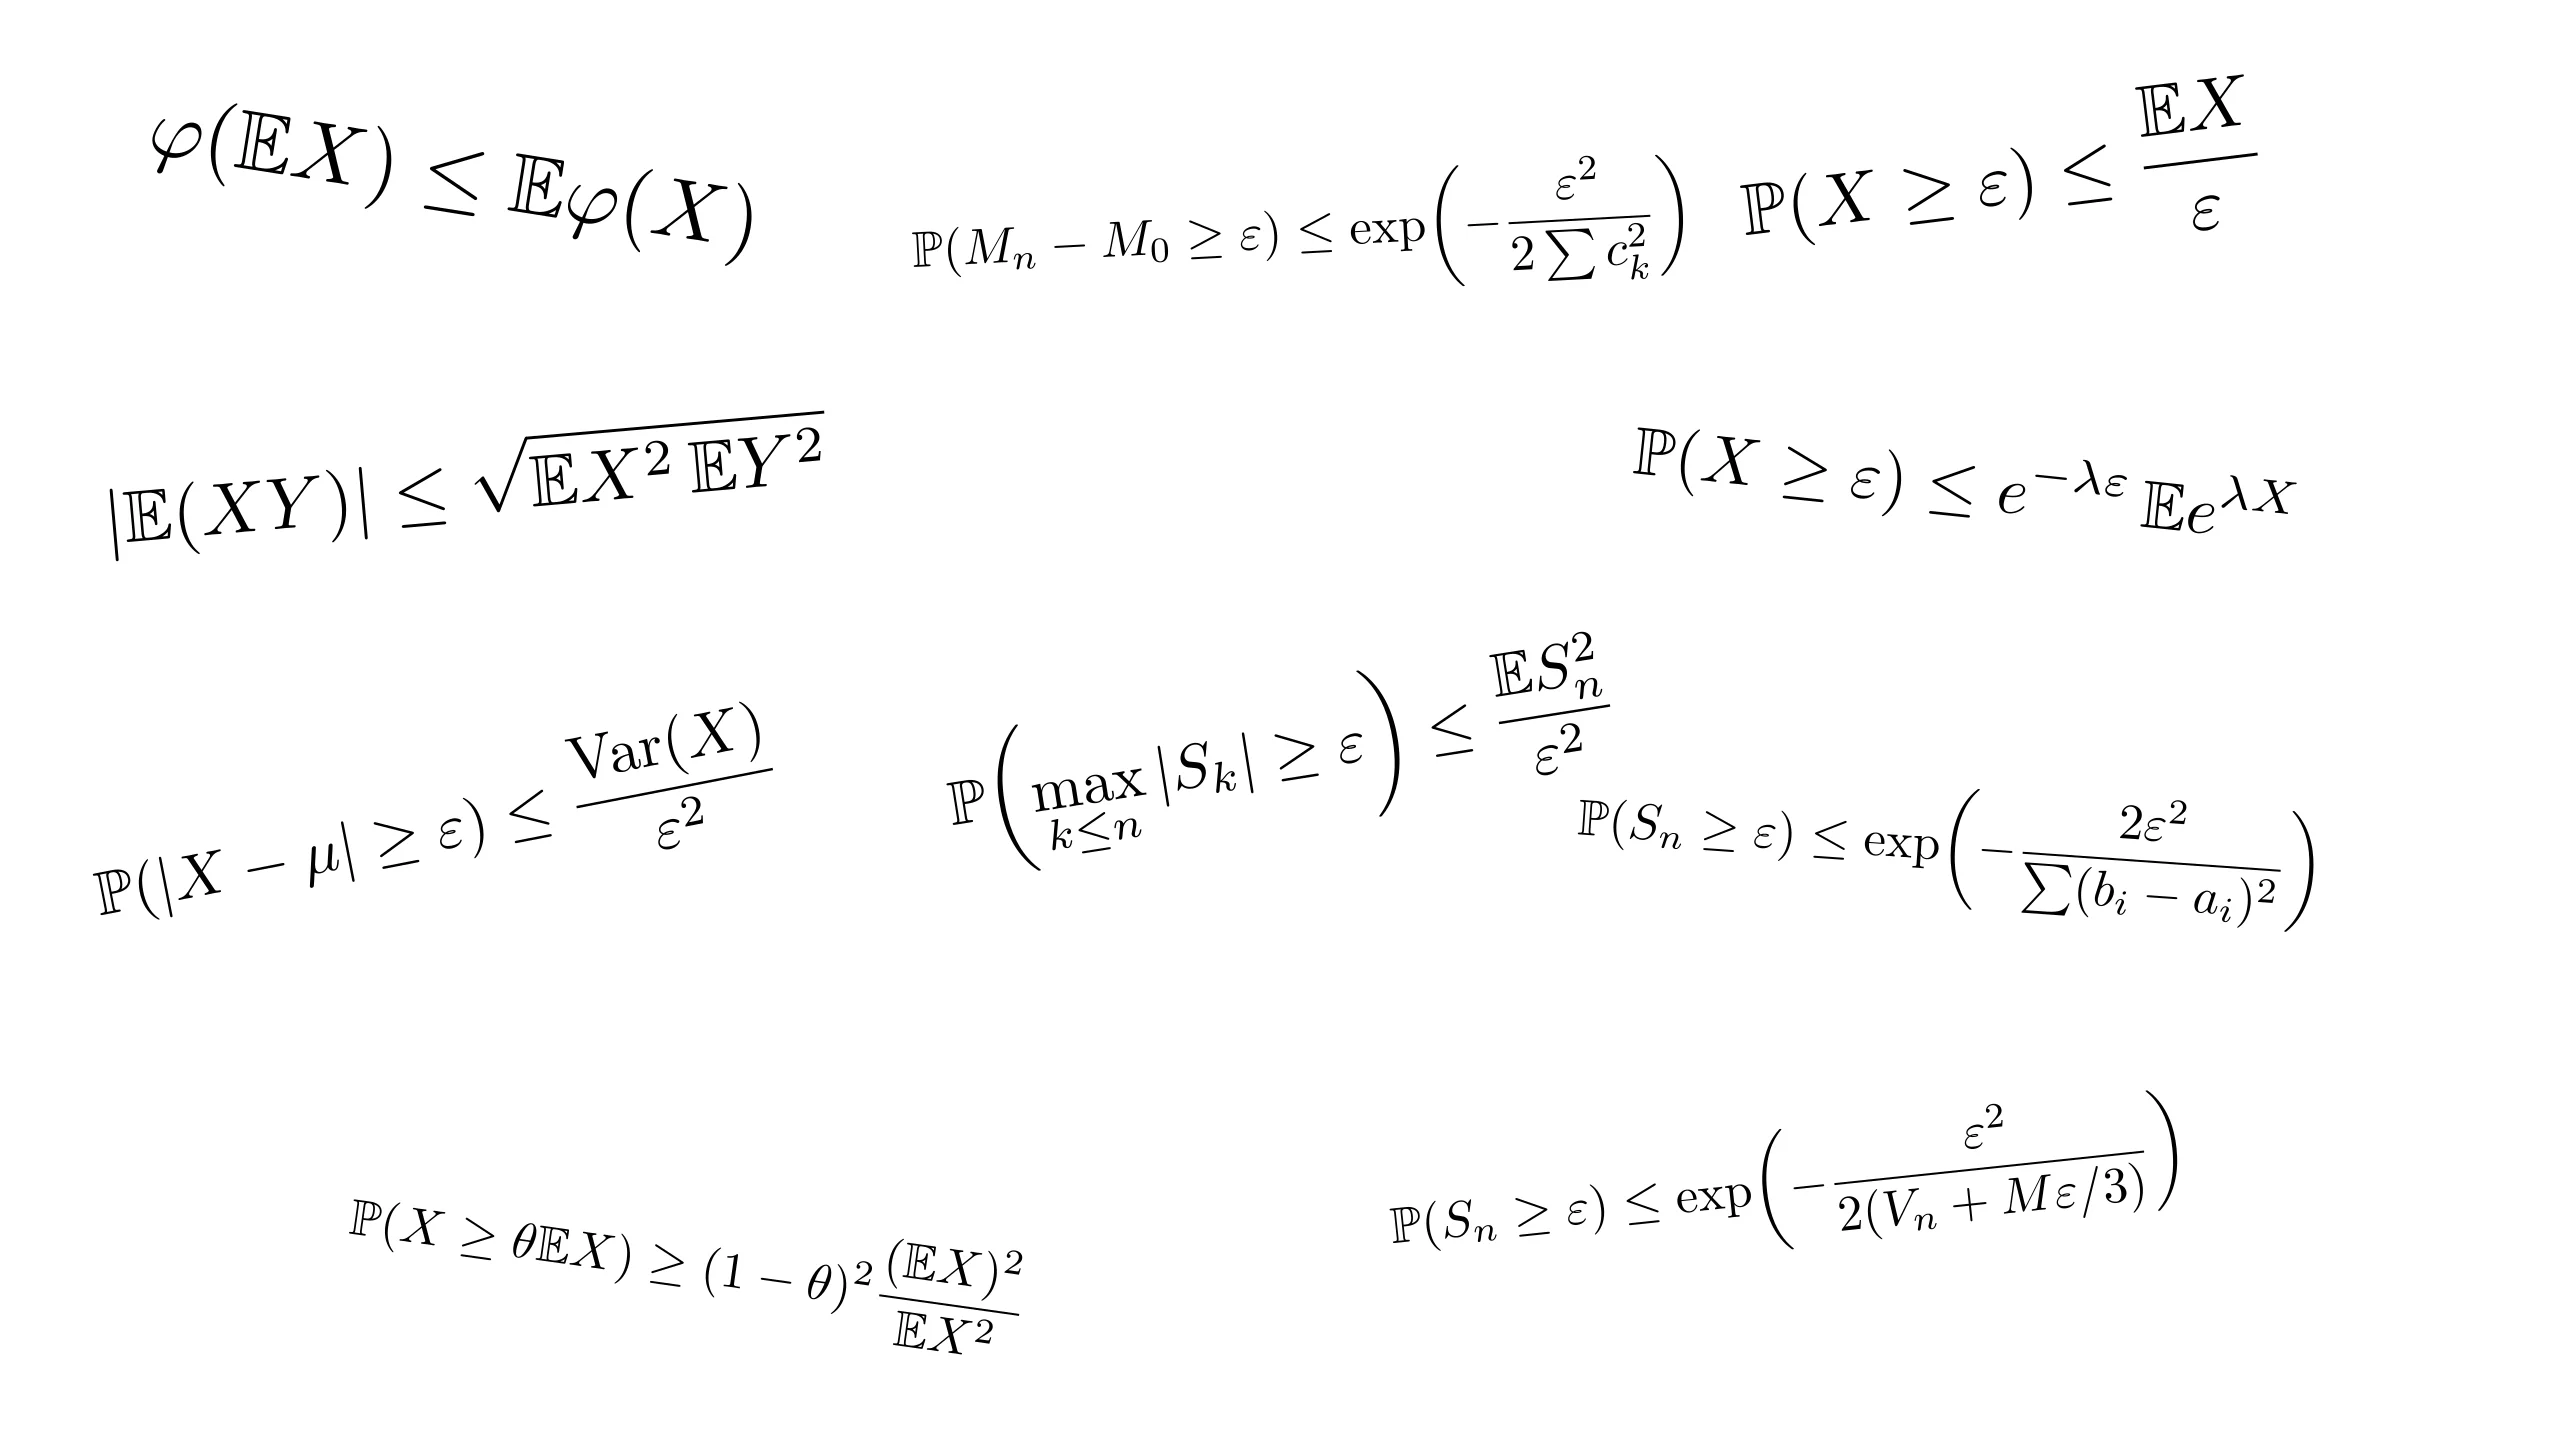 φ(𝔼X) ≤ 𝔼φ(X)
ℙ(M_n − M_0 ≥ ε) ≤ exp(−ε² / (2 ∑ c_k²))
ℙ(X ≥ ε) ≤ 𝔼X / ε
|𝔼(XY)| ≤ √(𝔼X² 𝔼Y²)
ℙ(X ≥ ε) ≤ e^{−λε} 𝔼e^{λX}
ℙ(|X − μ| ≥ ε) ≤ Var(X) / ε²
ℙ(max_{k≤n} |S_k| ≥ ε) ≤ 𝔼S_n² / ε²
ℙ(S_n ≥ ε) ≤ exp(−2ε² / ∑(b_i − a_i)²)
ℙ(X ≥ θ𝔼X) ≥ (1 − θ)² (𝔼X)² / 𝔼X²
ℙ(S_n ≥ ε) ≤ exp(−ε² / (2(V_n + Mε/3)))